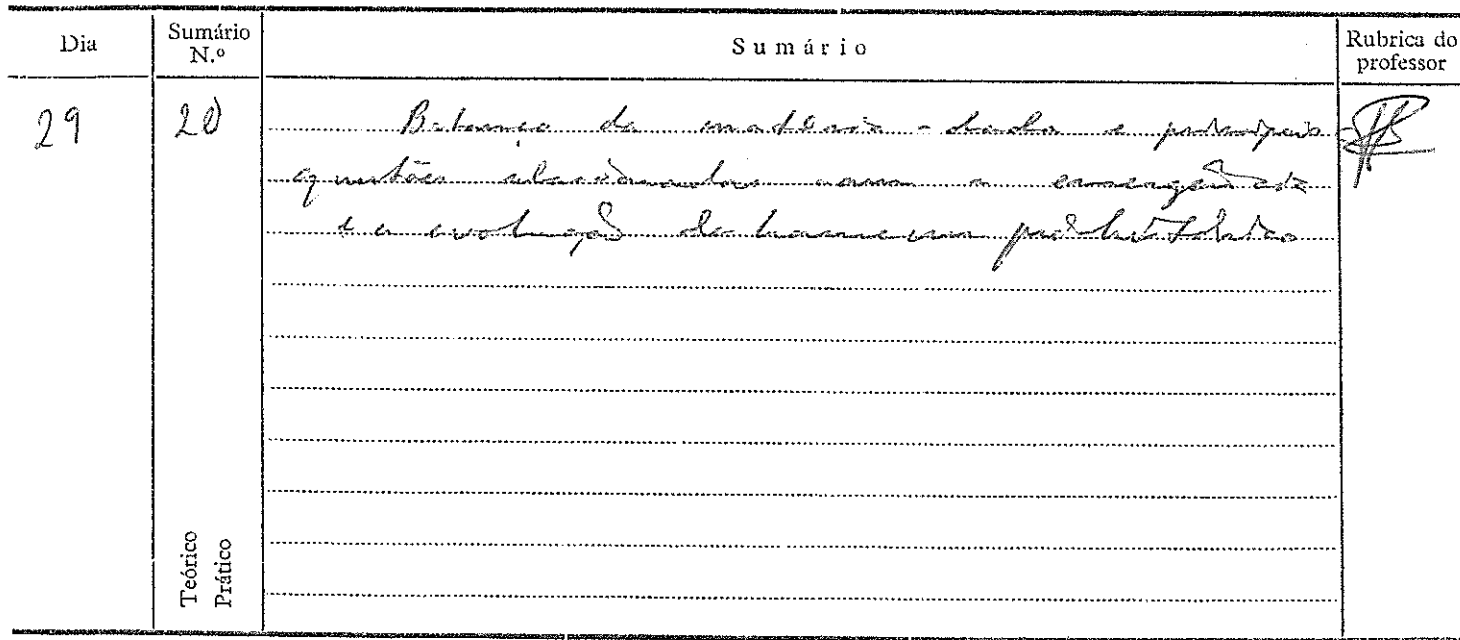 Dia
Sumário N.º
Sumário
Rubrica do professor
29
20
Balanço da matéria-dada e principais
questões relacionadas com a emergência
e a evolução do homem pré-histórico
Teórico
Prático